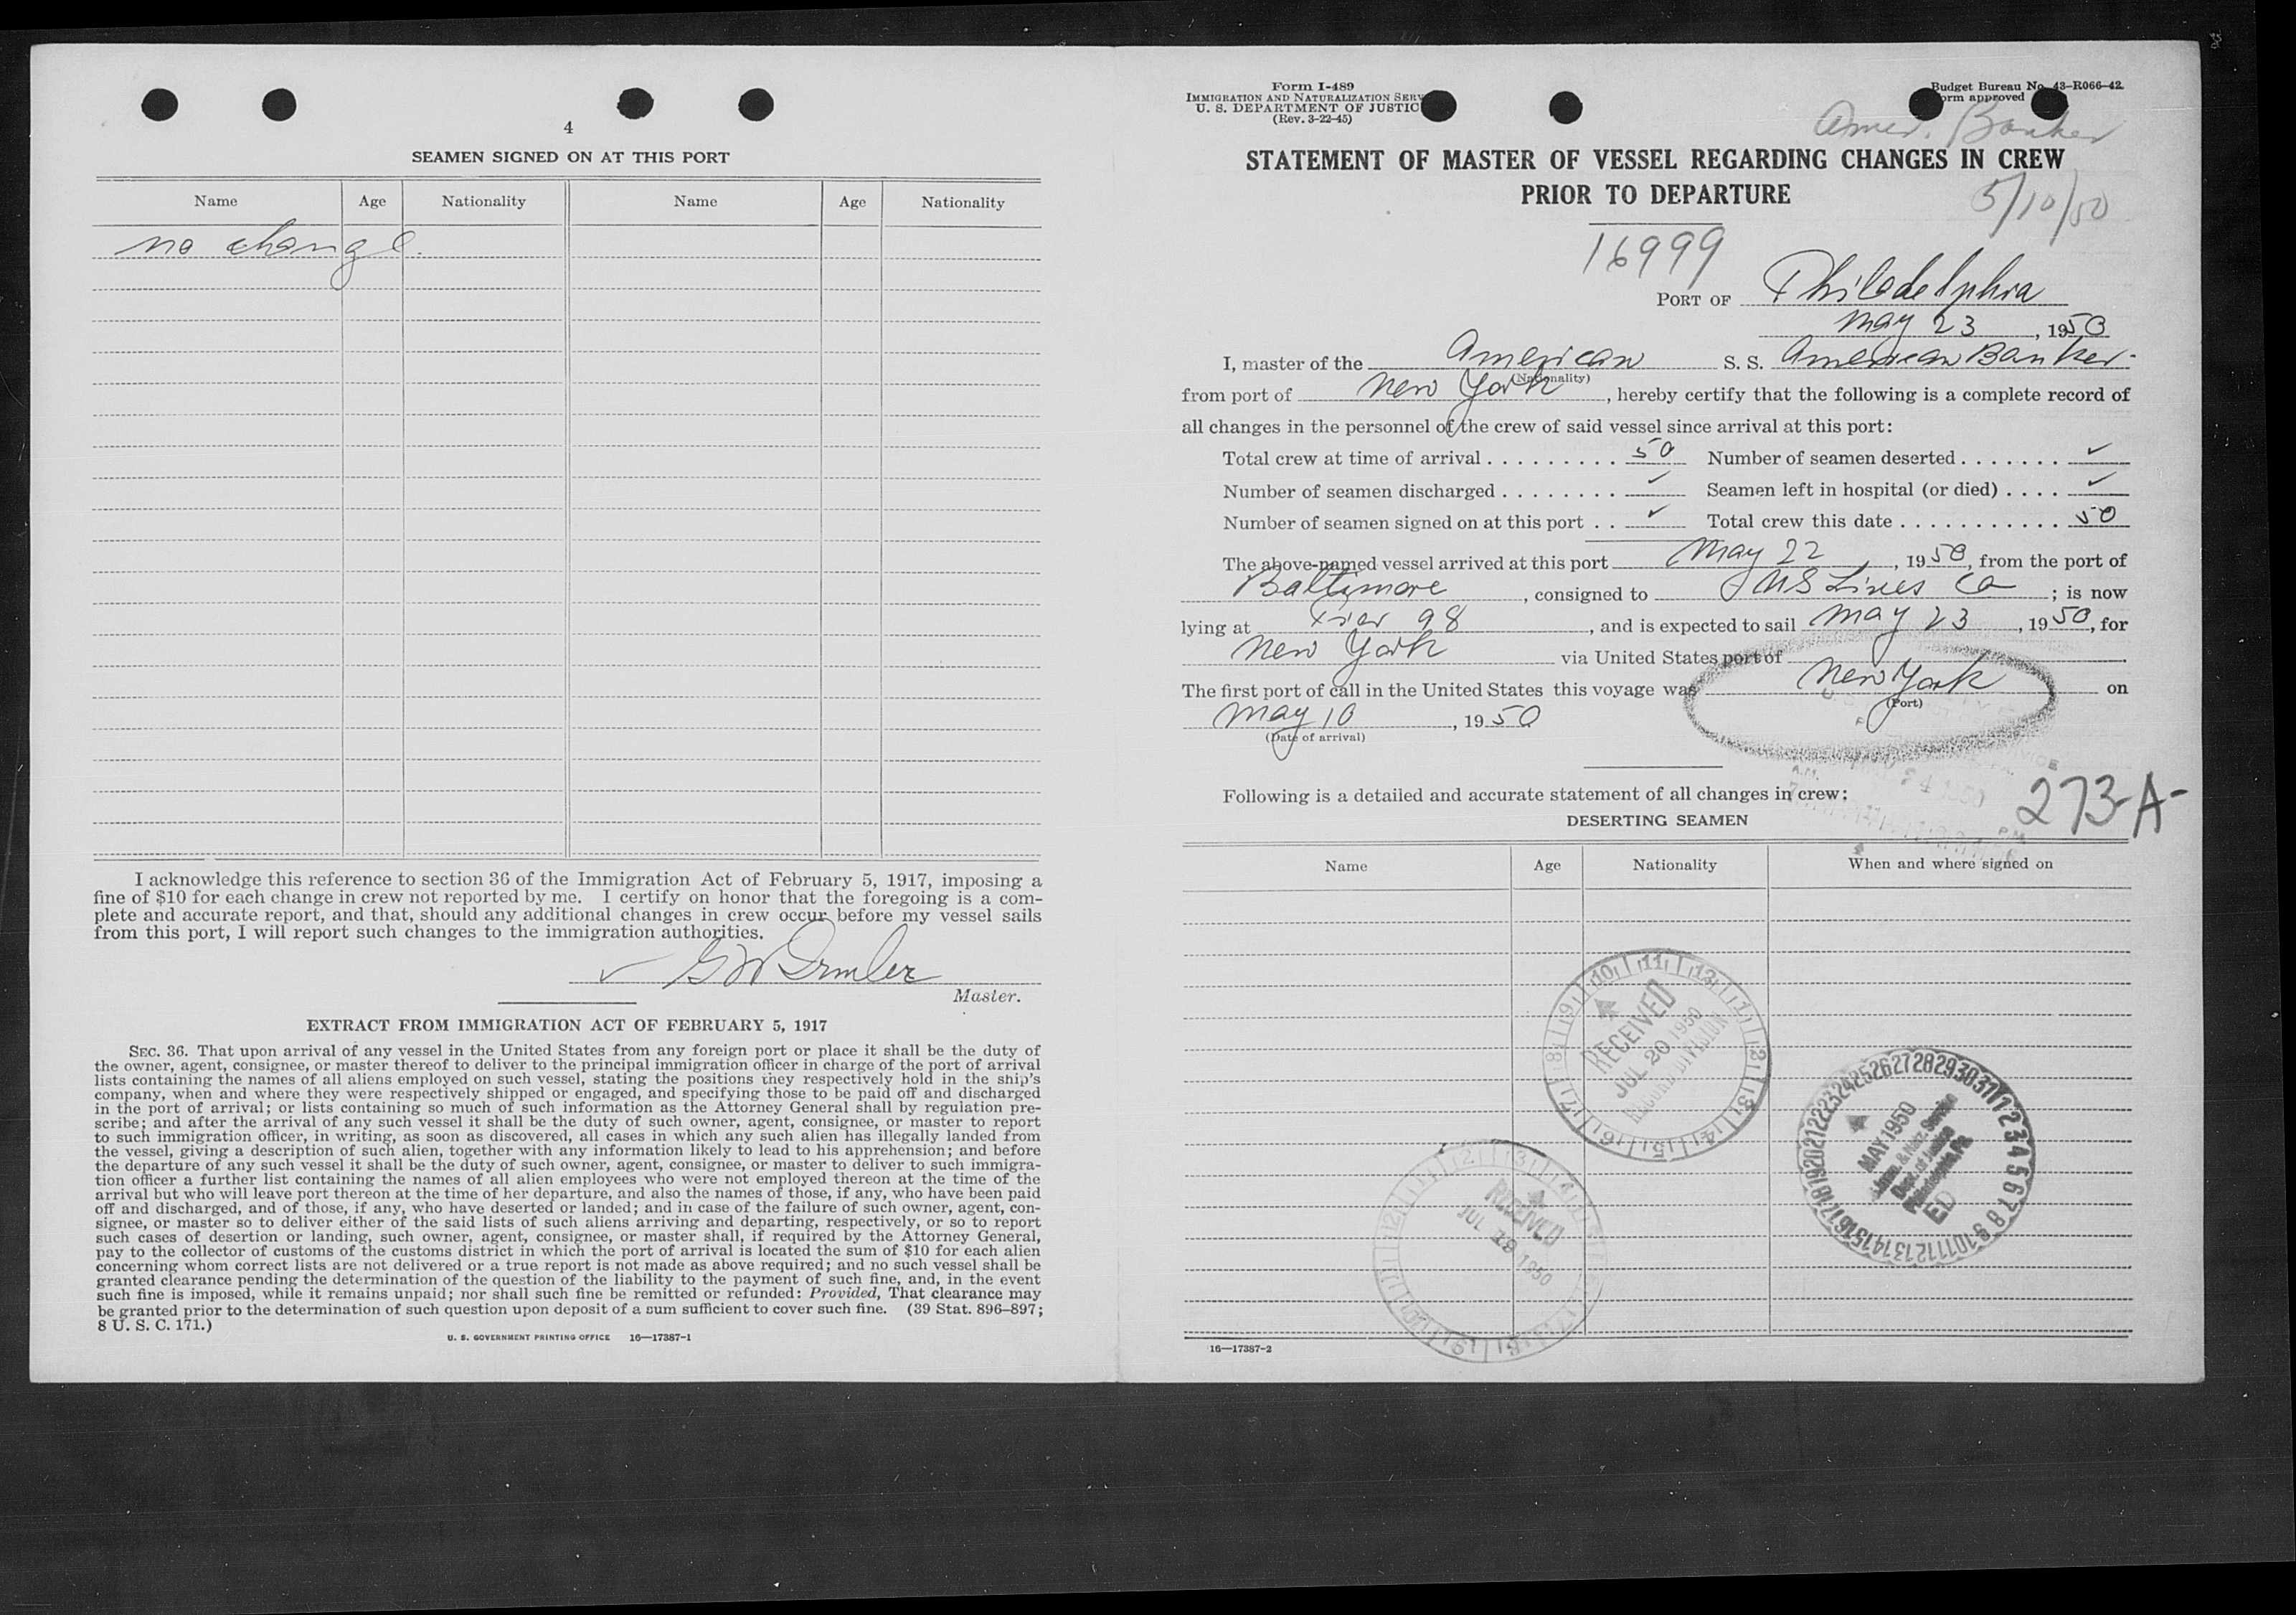 4
SEAMEN SIGNED ON AT THIS PORT
Name Age Nationality Name Age Nationality
no change.
I acknowledge this reference to section 36 of the Immigration Act of February 5, 1917, imposing a
fine of $10 for each change in crew not reported by me. I certify on honor that the foregoing is a com-
plete and accurate report, and that, should any additional changes in crew occur before my vessel sails
from this port, I will report such changes to the immigration authorities.
Master.
EXTRACT FROM IMMIGRATION ACT OF FEBRUARY 5, 1917
SEC. 36. That upon arrival of any vessel in the United States from any foreign port or place it shall be the duty of
the owner, agent, consignee, or master thereof to deliver to the principal immigration officer in charge of the port of arrival
lists containing the names of all aliens employed on such vessel, stating the positions they respectively hold in the ship's
company, when and where they were respectively shipped or engaged, and specifying those to be paid off and discharged
in the port of arrival; or lists containing so much of such information as the Attorney General shall by regulation pre-
scribe; and after the arrival of any such vessel it shall be the duty of such owner, agent, consignee, or master to report
to such immigration officer, in writing, as soon as discovered, all cases in which any such alien has illegally landed from
the vessel, giving a description of such alien, together with any information likely to lead to his apprehension; and before
the departure of any such vessel it shall be the duty of such owner, agent, consignee, or master to deliver to such immigra-
tion officer a further list containing the names of all alien employees who were not employed thereon at the time of the
arrival but who will leave port thereon at the time of her departure, and also the names of those, if any, who have been paid
off and discharged, and of those, if any, who have deserted or landed; and in case of the failure of such owner, agent, con-
signee, or master so to deliver either of the said lists of such aliens arriving and departing, respectively, or so to report
such cases of desertion or landing, such owner, agent, consignee, or master shall, if required by the Attorney General,
pay to the collector of customs of the customs district in which the port of arrival is located the sum of $10 for each alien
concerning whom correct lists are not delivered or a true report is not made as above required; and no such vessel shall be
granted clearance pending the determination of the question of the liability to the payment of such fine, and, in the event
such fine is imposed, while it remains unpaid; nor shall such fine be remitted or refunded: Provided, That clearance may
be granted prior to the determination of such question upon deposit of a sum sufficient to cover such fine. (39 Stat. 896–897;
8 U. S. C. 171.)
U. S. GOVERNMENT PRINTING OFFICE 16—17387-1
Form I-489
IMMIGRATION AND NATURALIZATION SERV
U. S. DEPARTMENT OF JUSTIC
(Rev. 3-22-45)
Budget Bureau No. 43-R066-42.
orm approved
Amer. Banker
STATEMENT OF MASTER OF VESSEL REGARDING CHANGES IN CREW
PRIOR TO DEPARTURE
5/10/50
16999
PORT OF Philadelphia
May 23, 1950
I, master of the American S. S. American Banker
(Nationality)
from port of New York, hereby certify that the following is a complete record of
all changes in the personnel of the crew of said vessel since arrival at this port:
Total crew at time of arrival . . . . . . . . . 50 Number of seamen deserted . . . . . . . ✓
Number of seamen discharged . . . . . . . . ✓ Seamen left in hospital (or died) . . . . ✓
Number of seamen signed on at this port . . ✓ Total crew this date . . . . . . . . . . . . 50
The above-named vessel arrived at this port May 22, 1950, from the port of
Baltimore, consigned to US Lines Co; is now
lying at Pier 98, and is expected to sail May 23, 1950, for
New York via United States port of
The first port of call in the United States this voyage was New York on
(Port)
May 10, 1950
(Date of arrival)
Following is a detailed and accurate statement of all changes in crew:
273-A-
DESERTING SEAMEN
Name Age Nationality When and where signed on
RECEIVED
JUL 20 1950
RECORD DIVISION
MAY 1950
Imm. & Natz. Service
Dept. of Justice
Philadelphia, Pa.
RECEIVED
JUL 19 1950
16—17387-2